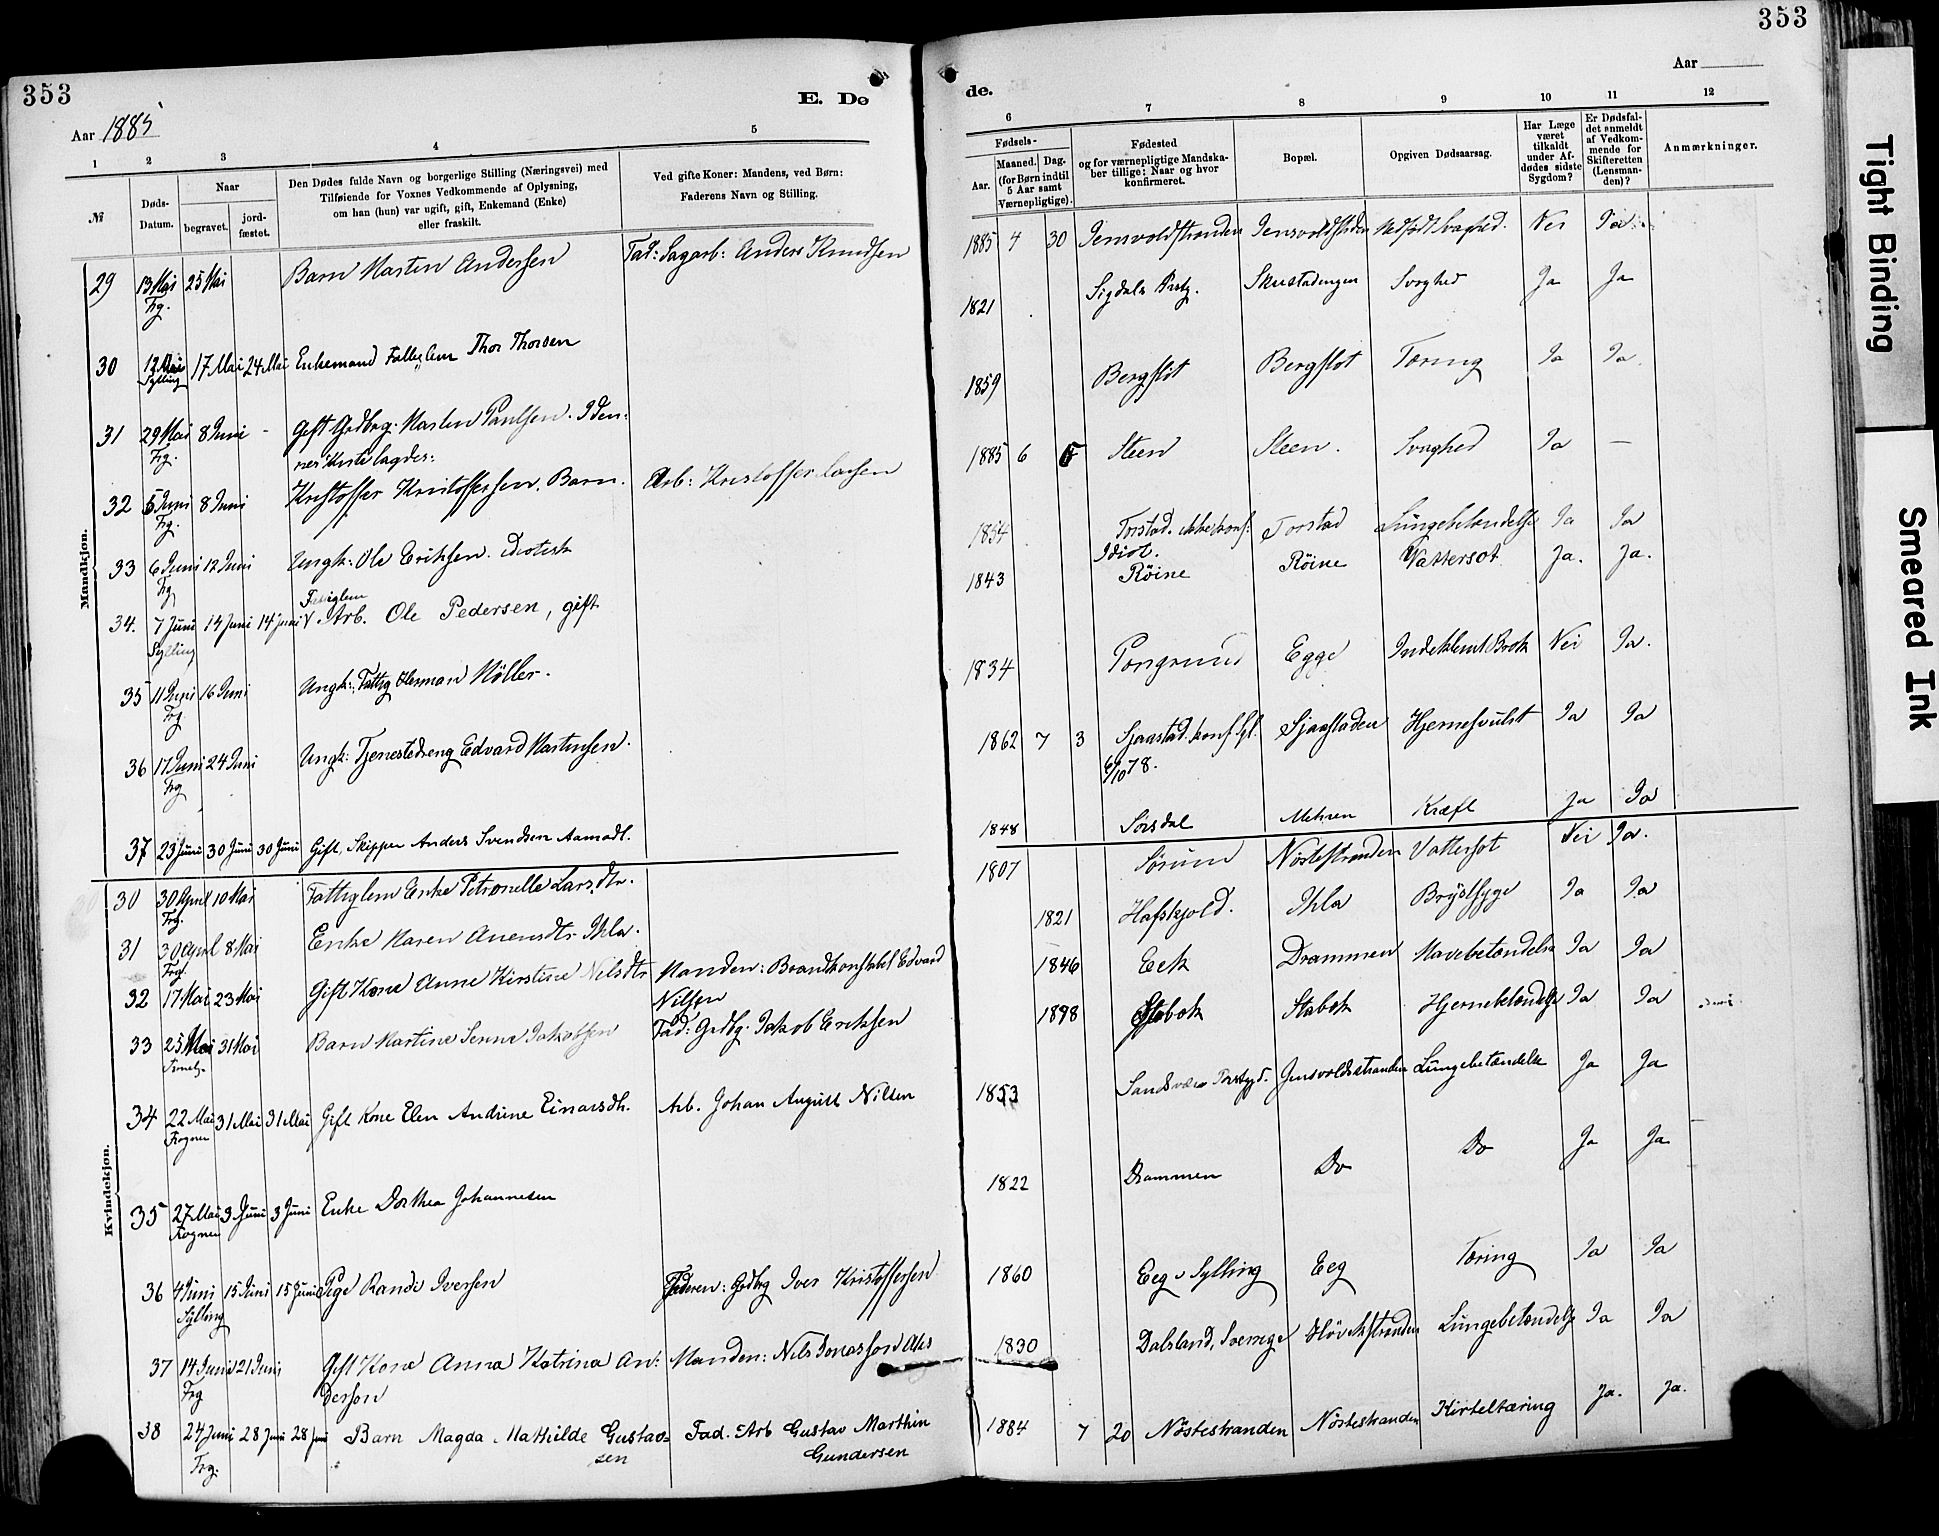 353
Aar 1885
E. Dø
1 2 3 4 5
№
Døds-Datum.
Naar
begravet.
jord-fæstet.
Den Dødes fulde Navn og borgerlige Stilling (Næringsvei) med
Tilføiende for Voxnes Vedkommende af Oplysning,
om han (hun) var ugift, gift, Enkemand (Enke)
eller fraskilt.
Ved gifte Koner: Mandens, ved Børn:
Faderens Navn og Stilling.
Mandkjøn.
29 13 Mai Frg. 25 Mai Barn Marten Andersen Fad: Sagarb: Anders Knudsen
30 12 Mai Sylling 17 Mai 24 Mai Enkemand Fattiglem Thor Thorsen
31 29 Mai Frg. 8 Juni - Gift Gdbrg. Marten Paulsen.
32 5 Juni Frg. 8 Juni Kristoffer Kristoffersen. Barn. Arb: Kristoffer Larsen
33 6 Juni Frg 12 Juni Ungk: Ole Eriksen. Idiotisk
34. 7 Juni Sylling 14 Juni 14 Juni Fattiglem
Arb. Ole Pedersen, gift
35 11 Juni Frg. 16 Juni Ungk: Fattig Møller.
36 17 Juni Frg 24 Juni Ungk: Tjenestedreng Edvard Martinsen.
37 23 Juni 30 Juni 30 Juni Gift, Skipper Anders Svendsen Aamodt.
Kvindekjøn.
30 30 April Frg. 10 Mai Fattiglem Enke Petronelle Larsdtr.
31 30 April Frg. 8 Mai Enke Maren Ihla.
32 17 Mai 23 Mai Gift Kone Anne Kirstine Nilsdtr Manden: Brandkonstabel Edvard
Nilsen
33 25 Mai 31 Mai Barn Martine Jakobsen Fad: Gdbg. Jakob Eriksen
34 22 Mai Frogner 31 Mai 31 Mai Gift Kone Elen Andrine Einarsdtr. Arb. Johan August Nilsen
35 27 Mai Frogner 3 Juni 3 Juni Enke Dorthea Johannesen
36 4 Juni Sylling 15 Juni 15 Juni Pige Randi Iversen Faderen: Gdbrg Iver Kristoffersen
37 14 Juni Frg 21 Juni Gift Kone Anna Katrina An: Manden: Nils Jonasson
derson
38 24 Juni Frg. 28 Juni 28 Juni Barn Magda Mathilde Gustav- Fad. Arb Gustav Marthin
sen Gundersen
353
Aar
de.
6 7 8 9 10 11 12
Fødsels-
Aar.
Maaned. Dag.
(for Børn indtil
5 Aar samt
Værnepligtige).
Fødested
og for værnepligtige Mandska-
ber tillige: Naar og hvor
konfirmeret.
Bopæl.
Opgiven Dødsaarsag.
Har Læge
været
tilkaldt
under Af-
dødes sidste
Sygdom?
Er Dødsfal-
det anmeldt
af Vedkom-
mende for
Skifteretten
(Lensman-
den)?
Anmærkninger.
1885 4 30 Jensvoldstranden Jensvoldstranden Medfødt Svaghed. Nei Ja
1821 Sigdals Prstg. Skustadengen Svaghed Ja Ja
1859 Bergflot Bergflot Tæring Ja Ja.
1885 6 5 Steen Steen. Svaghed Ja —
1854 Torstad. ikke konf: Torstad Lungebetændelse Ja Ja
Idiot.
1843 Røine Røine Vattersot Ja. Ja.
1834 Porsgrund Egge Indeklemt Brok Nei Ja.
1862 7 3 Sjaastad. konf. Syl. Sjaastaden Hjernesvulst Ja Ja
6/10 78.
1848 Sørsdal Mehren Kræft Ja Ja
1807 Sørum Nøstestranden Vattersot Nei Ja.
1821 Hafskjold. Ihla Brystsyge Ja Ja
1846 Eek Drammen Mavebetændelse Ja Ja
1878 Stabæk Stabæk Hjernebetændelse Ja Ja
1853 Sandsvær Prstgjd. Jensvoldsstranden Lungebetændelse Ja Ja
1822 Drammen Do Do Ja Ja
1860 Eeg i Sylling Eeg Tæring Ja Ja
1830 Dalsland, Sverrige Høvikstranden Lungebetændelse Ja Ja
1884 7 20 Nøstestranden Nøstestranden Kirteltæring Ja. Ja.
Tight Binding
Smeared Ink